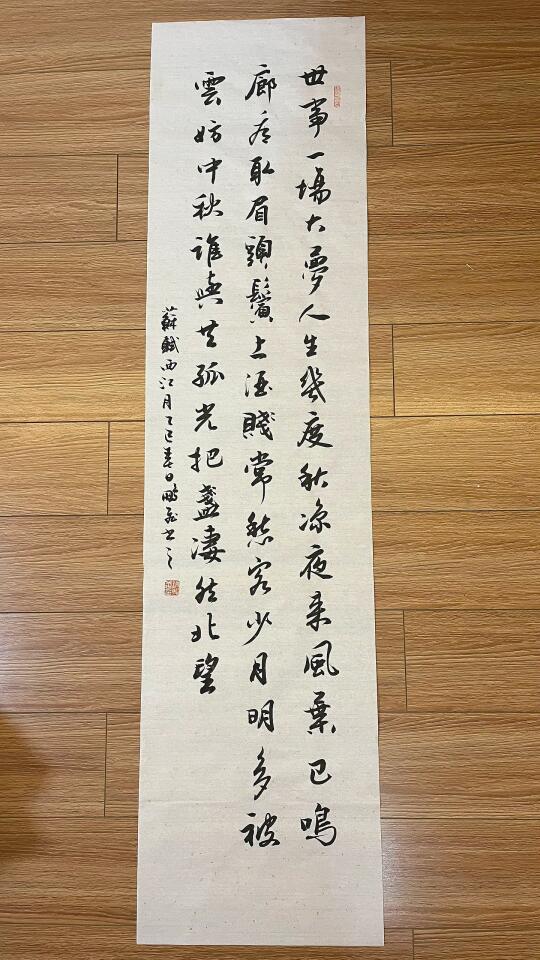 世事一場大夢人生幾度秋涼夜来風葉已鳴
廊看取眉頭鬢上酒賤常愁客少月明多被
雲妨中秋誰與共孤光把盞淒然北望
蘇軾西江月乙巳春日鵬飛書之